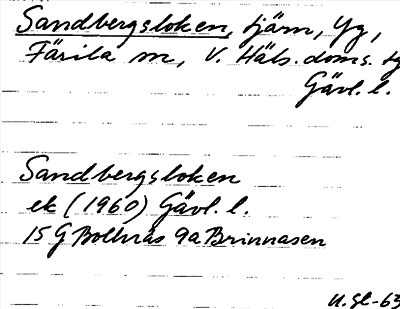 Sandbergsloken, tjärn, Yg,
Färila sn, V. Häls. doms. tg
Gävl. l.
Sandbergsloken
ek (1960) Gävl. l.
15 G Bollnäs 9a Brinnåsen
U.gl-63